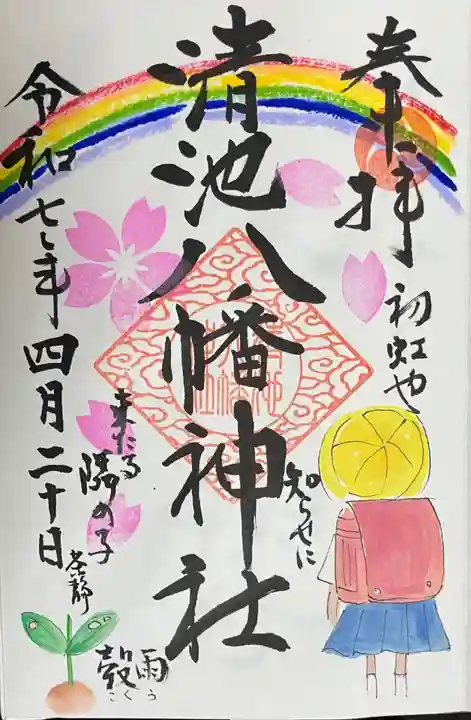 奉拝
初虹や
知らせに
清池八幡神社
来たる
隣の子
令和七年四月二十日
穀雨
こくう